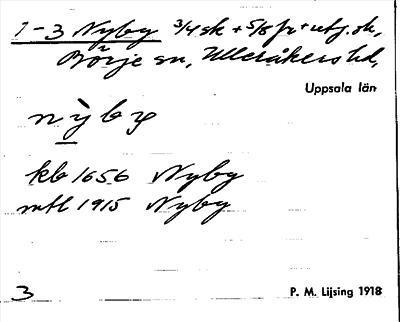 1-3 Nyby 3/4 sk + 5/8 fr + utj. sk,
Börje sn, Ulleråkers hd,
Uppsala län
nỳby
kb 1656 Nyby
mtl 1915 Nyby
3
P. M. Lijsing 1918